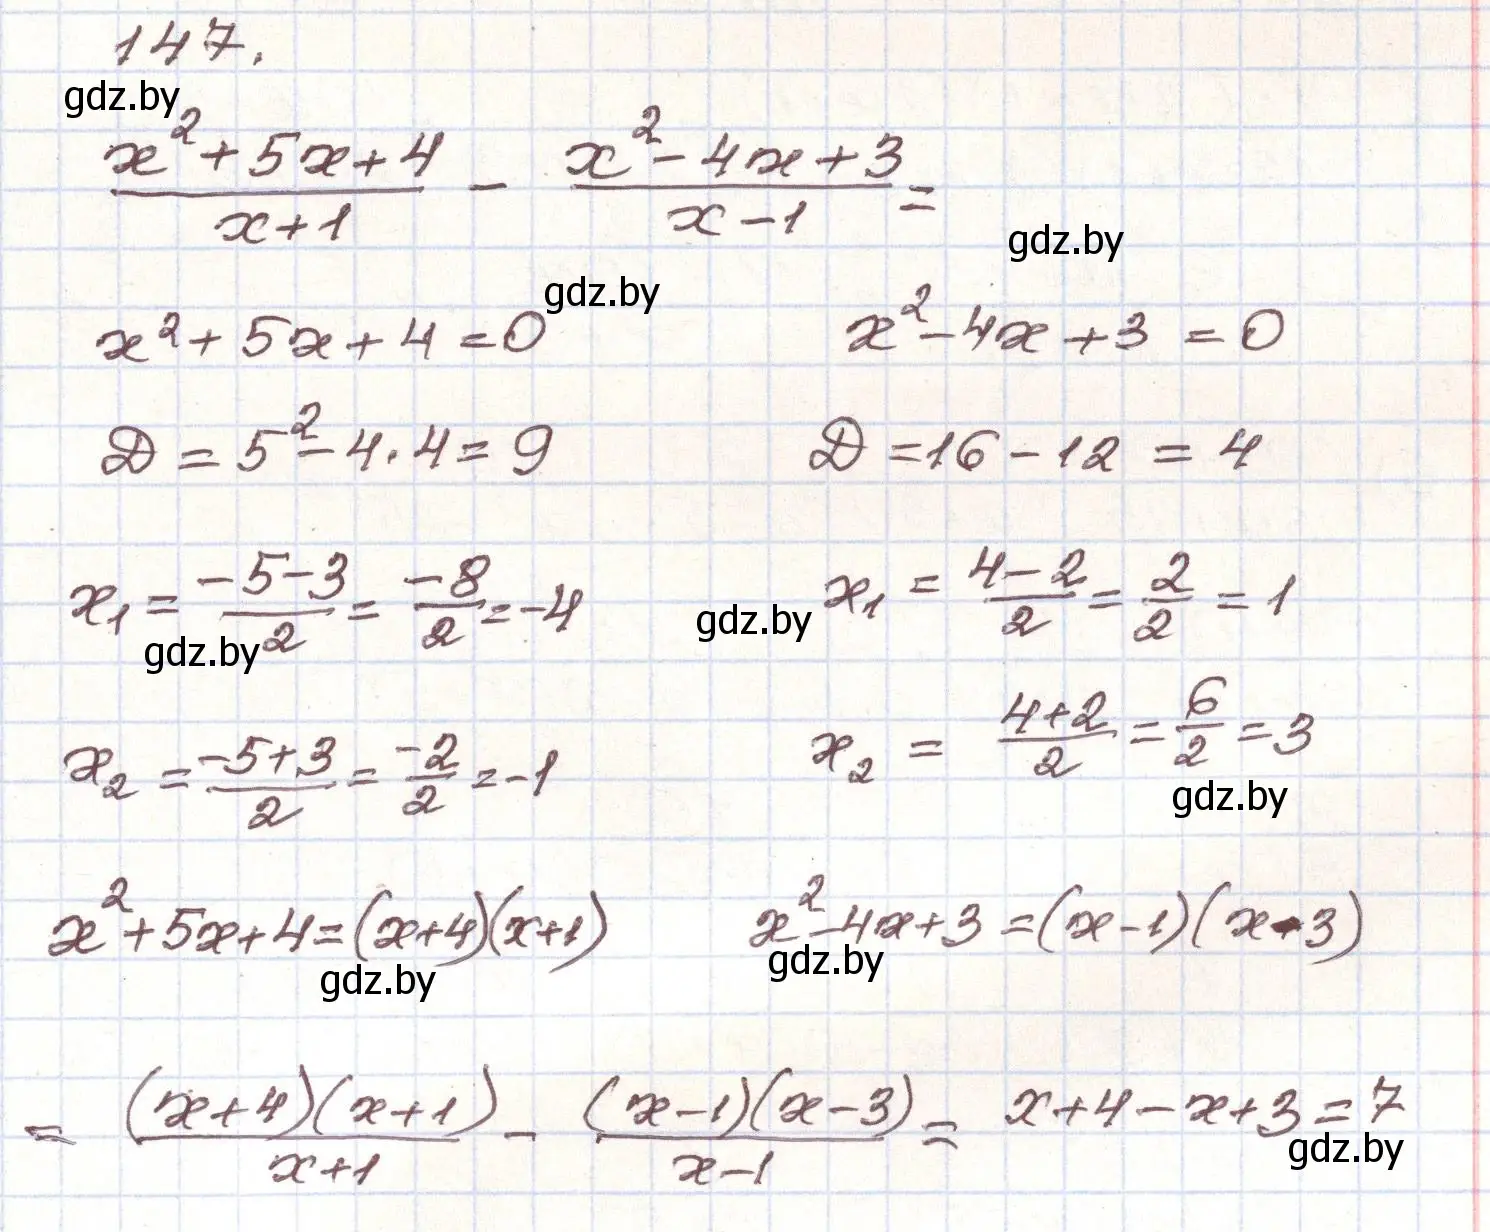 147.
gdz.by
x²+5x+4/x+1 - x²-4x+3/x-1 =
gdz.by
gdz.by
x²+5x+4=0 x²-4x+3=0
D=5²-4·4=9 D=16-12=4
x₁=-5-3/2=-8/2=-4 x₁=4-2/2=2/2=1
gdz.by
gdz.by
x₂=-5+3/2=-2/2=-1 x₂=4+2/2=6/2=3
gdz.by
x²+5x+4=(x+4)(x+1) x²-4x+3=(x-1)(x-3)
gdz.by
gdz.by
= (x+4)(x+1)/x+1 - (x-1)(x-3)/x-1 = x+4-x+3=7
gdz.by